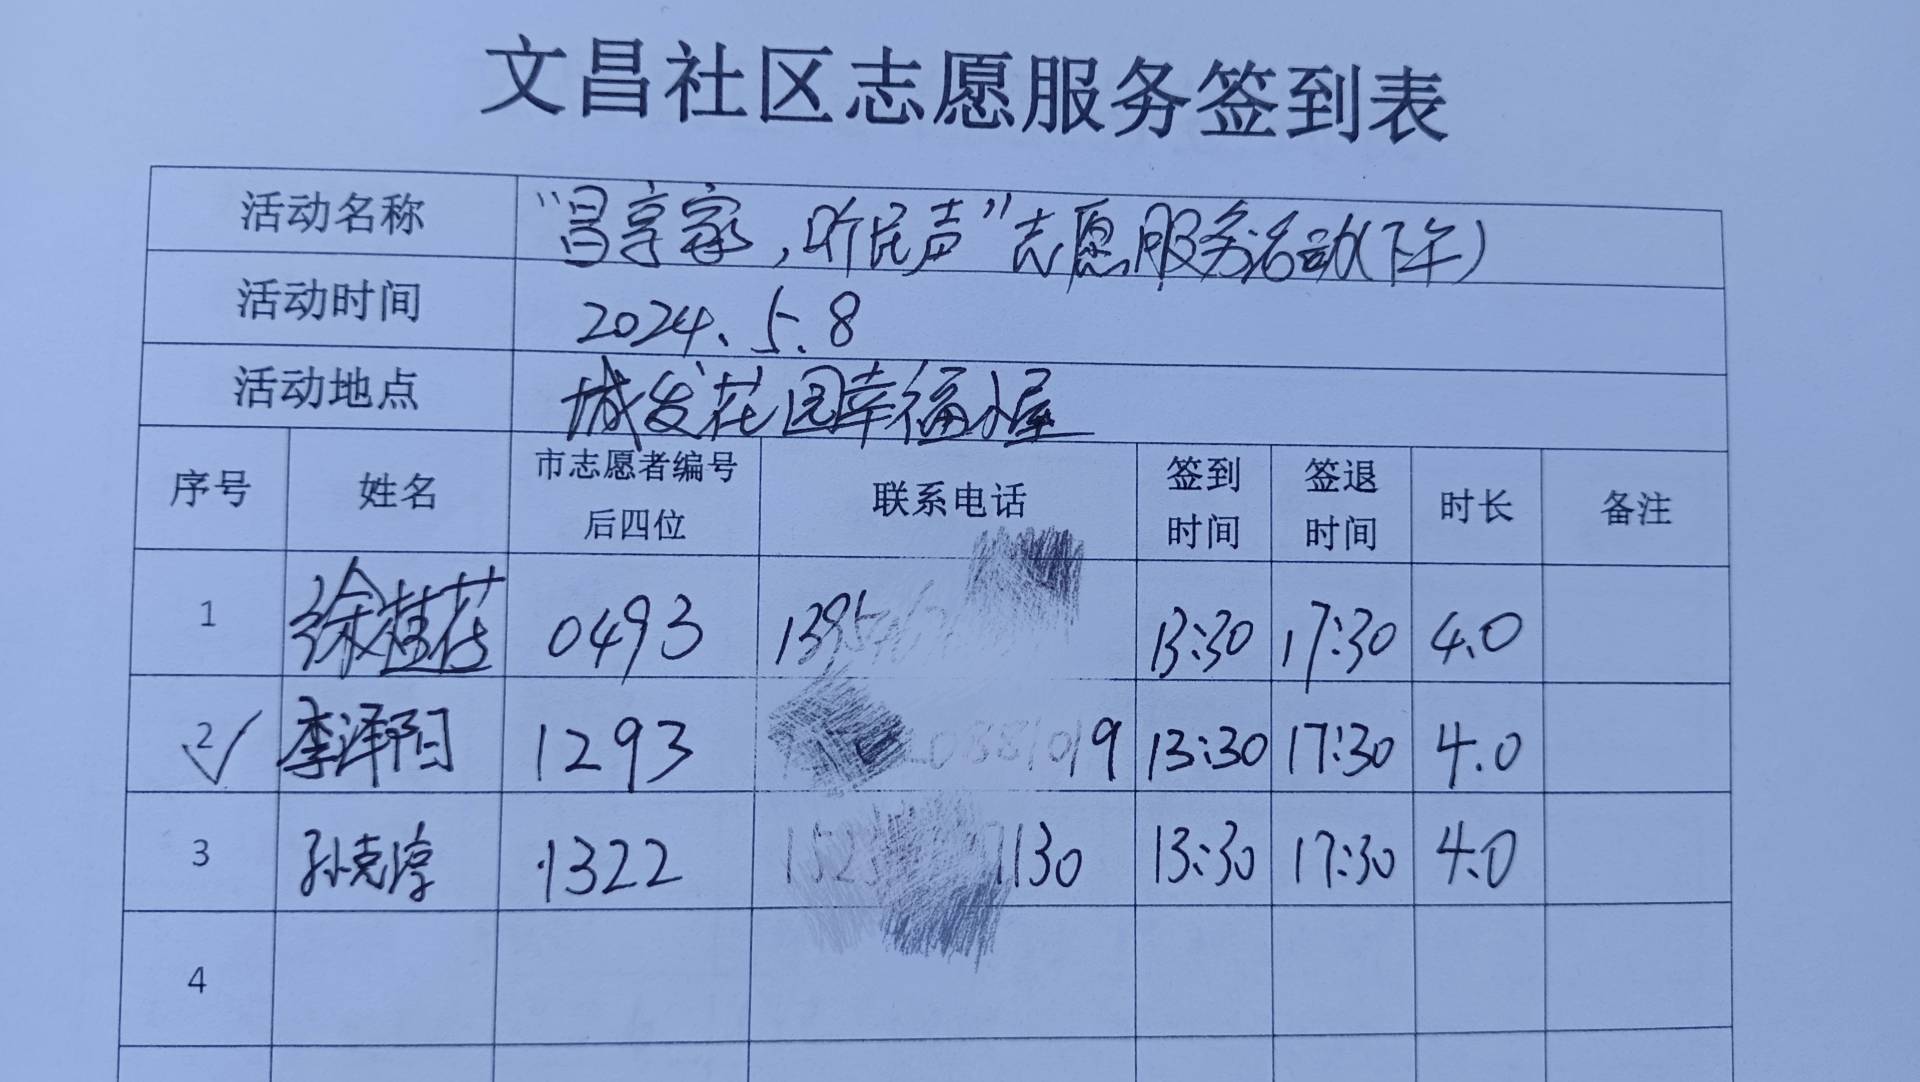 文昌社区志愿服务签到表
活动名称 “昌享家，听民声”志愿服务活动(下午)
活动时间 2024.5.8
活动地点 城发花园幸福小屋
序号 姓名 市志愿者编号后四位 联系电话 签到时间 签退时间 时长 备注
1 徐桂花 0493 13:30 17:30 4.0
2 李泽阳 1293 13:30 17:30 4.0
3 孙克淳 1322 13:30 17:30 4.0
4